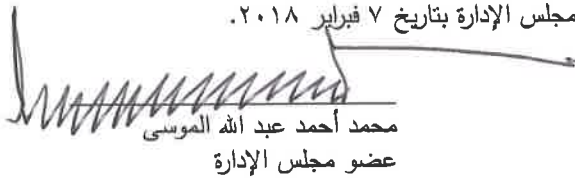 مجلس الإدارة بتاريخ ٧ فبراير ٢٠١٨.
محمد أحمد عبد الله الموسى
عضو مجلس الإدارة